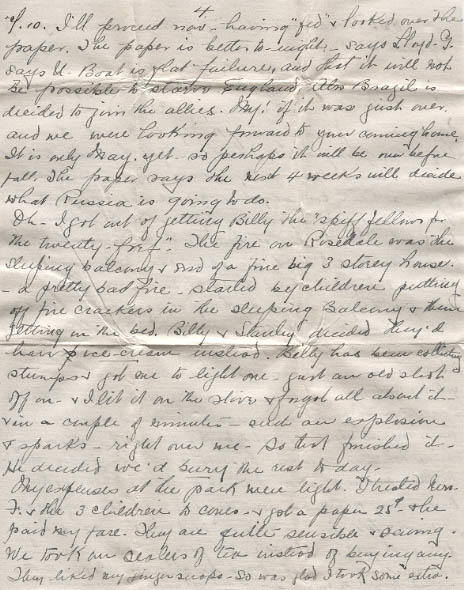 4
9.10. I'll proceed now - having "fed" & looked over the
paper. The paper is better to-night - says Lloyd-G.
says U-Boat is flat failure, and that it will not
be possible to starve England. Also Brazil is
decided to join the allies. My! if it was just over
and we were looking forward to your coming home.
It is only May. yet. so perhaps it will be over before
fall. The paper says the next 4 weeks will decide
what Russia is going to do.
Oh - I got out of getting Billy the "spiff fellows for
the twenty-first". The fire on Rosedale was the
sleeping balcony & end of a fine big 3 storey house.
- a pretty bad fire - started by children putting
off fire crackers in the sleeping Balcony & them
getting in the bed. Billy & Stanley decided they'd
have ice-cream instead. Billy has been collecting
stumps & got me to light one - just an old
one - & I lit it on the stove & forgot all about it -
& in a couple of minutes - such an explosion
& sparks - right over me - So that finished it -
He decided we'd bury the rest to day.
My expenses at the park were light. I treated Mrs.
F. & the 3 children to cones - & got a paper 25¢ & she
paid my fare. They are quite sensible & saving.
We took our sealers of tea instead of buying any.
They liked my gingersnaps - So was glad I took some extra.